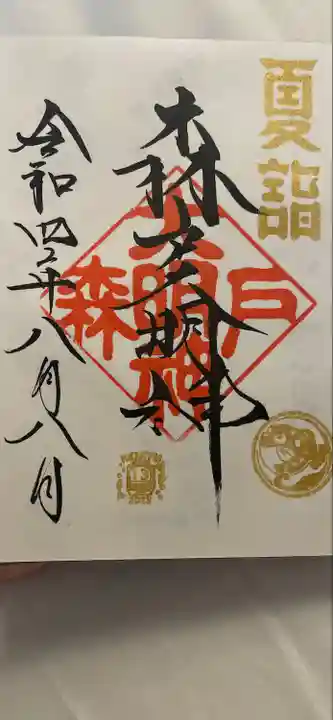 夏詣
森戸大明神
森戸
大明神
令和四年八月八日